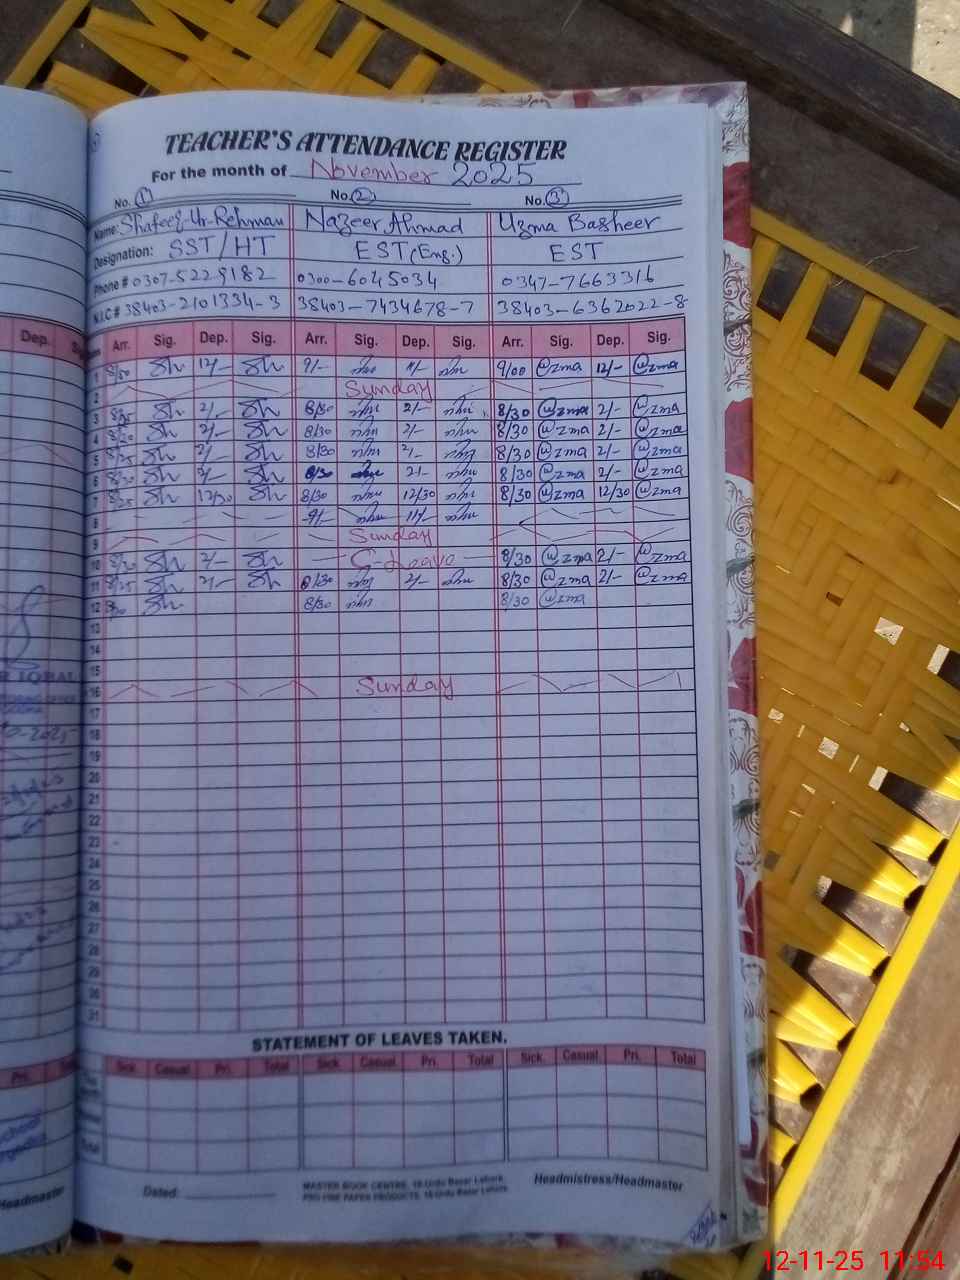 TEACHER'S ATTENDANCE REGISTER
For the month of November 2025
No. 1 No. 2 No. 3
Name: Shafeeq-Ur-Rehman Nazeer Ahmad Uzma Basheer
Designation: SST/HT EST (Eng.) EST
Phone # 0307-5229182 0300-6045034 0347-7663316
N.I.C# 38403-2101334-3 38403-7434678-7 38403-6367022-8
Arr. Sig. Dep. Sig. Arr. Sig. Dep. Sig. Arr. Sig. Dep. Sig.
1 12/- 9/- 11/- 9/00 @zma 12/- @zma
2 Sunday
3 8/25 2/- 8/30 2/- 8/30 @zma 2/- @zma
4 8/20 2/- 8/30 2/- 8/30 @zma 2/- @zma
5 8/25 2/- 8/30 2/- 8/30 @zma 2/- @zma
6 8/20 2/- 8/30 2/- 8/30 @zma 2/- @zma
7 8/25 12/30 8/30 12/30 8/30 @zma 12/30 @zma
8 9/- 11/-
9 Sunday
10 8/20 2/- C-Leave 8/30 @zma 2/- @zma
11 8/25 2/- 8/30 2/- 8/30 @zma 2/- @zma
12 8/30 8/30 @zma
13
14
15
16 Sunday
17
18
19
20
21
22
23
24
25
26
27
28
29
30
31
STATEMENT OF LEAVES TAKEN.
Sick. Casual Pri. Total Sick. Casual Pri. Total Sick. Casual Pri. Total
Total
Dated:
MASTER BOOK CENTRE, 18-Urdu Bazar Lahore.
PRO FINE PAPER PRODUCTS, 18-Urdu Bazar Lahore.
Headmistress/Headmaster
Dep.
Pri.
Headmaster
12-11-25 11:54